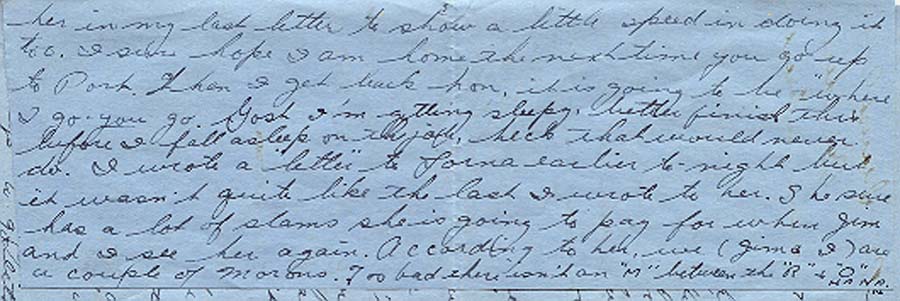 her in my last letter to show a little speed in doing it
too. I sure hope I am home the next time you go up
to Port. When I get back hon, it is going to be "where
I go-you go. Gosh I'm getting sleepy, better finish this
before I fall asleep on the job, heck that would never
do. I wrote a "letter" to Lorna earlier to-night but
it wasn't quite like the last I wrote to her. She sure
has a lot of slams she is going to pay for when Jim
and I see her again. According to her, we (Jim & I) are
a couple of morons. Too bad there isn't an "M" between th "R" & "O" HA HA.